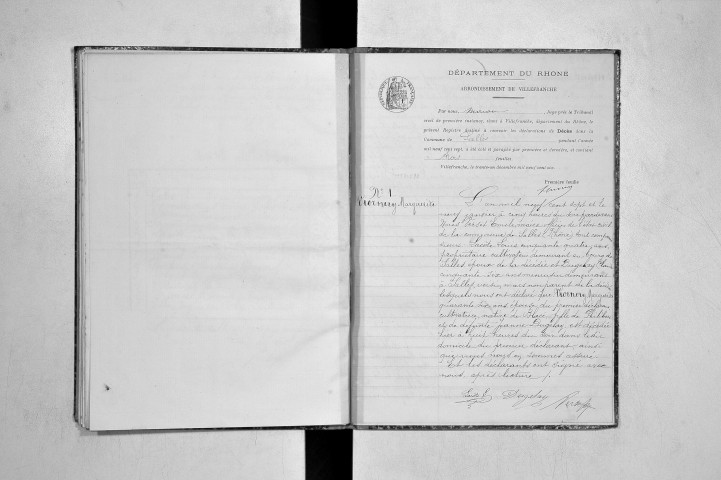 DÉPARTEMENT DU RHÔNE
ARRONDISSEMENT DE VILLEFRANCHE
Par nous, Juge près le Tribunal
civil de première instance, séant à Villefranche, département du Rhône, le
présent Registre destiné à contenir les déclarations de Décès dans la
Commune de Salles pendant l'année
mil neuf cent sept, a été coté et paraphé par première et dernière, et contient
trois feuilles
Villefranche, le trente-un décembre mil neuf cent six.
Première feuille
N° 1
Thornery Marguerite
L'an mil neuf cent sept et le
neuf janvier à cinq heures du soir pardevant
Nous maire officier de l'état civil
de la commune de Salles (Rhône) sont comparus
cinquante quatre ans
propriétaire cultivateur demeurant au bourg de
Salles époux de la décédée et Dugelay
cinquante six ans menuisier demeurant
à Salles, voisin, mais non parent de la défunte
lesquels nous ont déclaré que Thornery Marguerite
quarante six ans épouse du premier déclarant
cultivatrice, native de fille de
et de défunte Jeanne Dugelay est décédée
hier à huit heures du soir dans le dit
domicile du premier déclarant ainsi
que nous nous en sommes assuré
Et les déclarants ont signé avec
nous, après lecture /.
Dugelay